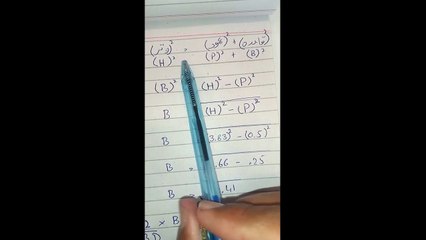 (وتر)² = (عمود)² + (قاعدہ)²
(H)² (P)² + (B)²
(B)² (H)² - (P)²
B (H)² - (P)²
B 3.83)² - (0.5)²
B = .66 - .25
B = .41
× B